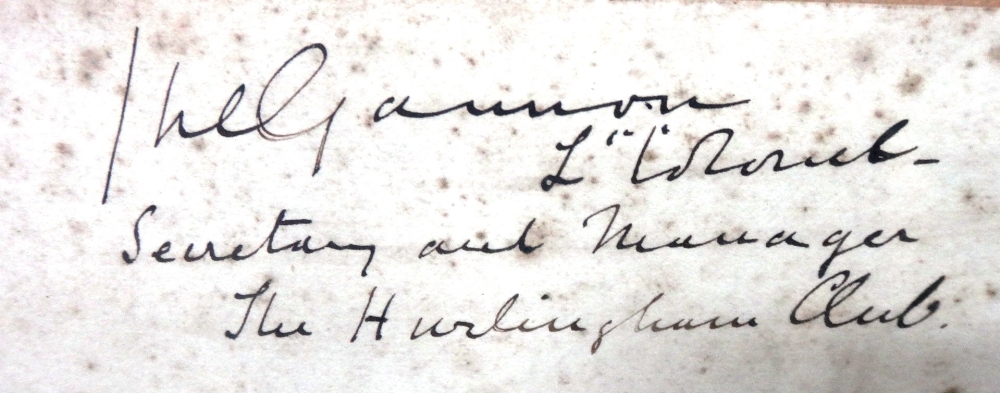 JRCGannon
Lt Colonel -
Secretary and Manager
The Hurlingham Club.